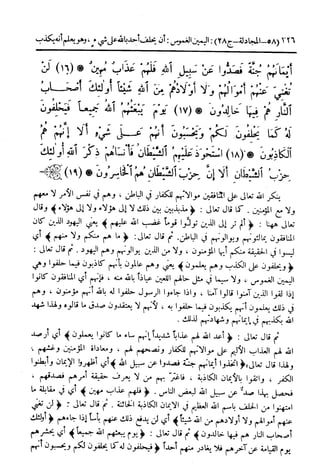 ٢٢٦ (٥٨- المجادلة - ج ٢٨): اليمين الغموس: أن يحلف أحد بالله على شيء، وهو يعلم أنه يكذب
أَيْمَانَهُمْ جُنَّةً فَصَدُّوا عَنْ سَبِيلِ اللَّهِ فَلَهُمْ عَذَابٌ مُهِينٌ (١٦) لَنْ
تُغْنِيَ عَنْهُمْ أَمْوَالُهُمْ وَلَا أَوْلَادُهُمْ مِنَ اللَّهِ شَيْئًا أُولَئِكَ أَصْحَابُ
النَّارِ هُمْ فِيهَا خَالِدُونَ (١٧) يَوْمَ يَبْعَثُهُمُ اللَّهُ جَمِيعًا فَيَحْلِفُونَ
لَهُ كَمَا يَحْلِفُونَ لَكُمْ وَيَحْسَبُونَ أَنَّهُمْ عَلَى شَيْءٍ أَلَا إِنَّهُمْ هُمُ
الْكَاذِبُونَ (١٨) اسْتَحْوَذَ عَلَيْهِمُ الشَّيْطَانُ فَأَنْسَاهُمْ ذِكْرَ اللَّهِ أُولَئِكَ
حِزْبُ الشَّيْطَانِ أَلَا إِنَّ حِزْبَ الشَّيْطَانِ هُمُ الْخَاسِرُونَ (١٩)
ينكر الله تعالى على المنافقين موالاتهم للكفار في الباطن، وهم في نفس الأمر لا معهم
ولا مع المؤمنين. كما قال تعالى: ﴿مذبذبين بين ذلك لا إلى هؤلاء ولا إلى هؤلاء﴾ وقال
تعالى ههنا: ﴿ألم تر إلى الذين تولوا قوما غضب الله عليهم﴾ يعني اليهود الذين كان
المنافقون يمالئونهم ويوالونهم في الباطن. ثم قال تعالى: ﴿ما هم منكم ولا منهم﴾ أي
ليسوا في الحقيقة منكم أيها المؤمنون، ولا من الذين يوالونهم وهم اليهود. ثم قال تعالى:
﴿ويحلفون على الكذب وهم يعلمون﴾ يعني وهم عالمون بأنهم كاذبون فيما حلفوا وهي
اليمين الغموس، ولا سيما في مثل حالهم اللعين عياذا بالله منه، فإنهم أي المنافقون كانوا
إذا لقوا الذين آمنوا قالوا آمنا، وإذا جاءوا الرسول حلفوا له بالله أنهم مؤمنون، وهم
في ذلك يعلمون أنهم يكذبون فيما حلفوا به، لأنهم لا يعتقدون صدق ما قالوه ولهذا شهد
الله بكذبهم في إيمانهم وشهادتهم لذلك.
ثم قال تعالى: ﴿أعد الله لهم عذابا شديدا إنهم ساء ما كانوا يعملون﴾ أي أرصد
الله لهم العذاب الأليم على موالاتهم للكفار ونصحهم لهم، ومعاداة المؤمنين وغشهم،
ولهذا قال تعالى ﴿اتخذوا أيمانهم جنة فصدوا عن سبيل الله﴾ أي أظهروا الإيمان وأبطنوا
الكفر، واتقوا بالأيمان الكاذبة، فاغتر بهم من لا يعرف حقيقة أمرهم فصدقهم.
فحصل بهذا صد عن سبيل الله لبعض الناس. ﴿فلهم عذاب مهين﴾ أي في مقابلة ما
امتهنوا من الحلف باسم الله العظيم في الايمان الكاذبة الحانثة. ثم قال تعالى: ﴿لن تغني
عنهم أموالهم ولا أولادهم من الله شيئا﴾ أي لن يدفع ذلك عنهم بأسا إذا جاءهم ﴿أولئك
أصحاب النار هم فيها خالدون﴾ ثم قال تعالى: ﴿يوم يبعثهم الله جميعا﴾ أي يحشرهم
يوم القيامة عن آخرهم فلا يغادر منهم أحدا ﴿فيحلفون له كما يحلفون لكم ويحسبون أنهم